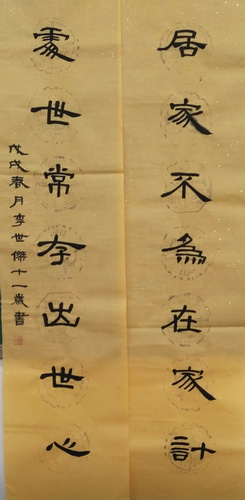 居家不為在家計
處世常存出世心
戊戌春月李世傑十一歲書